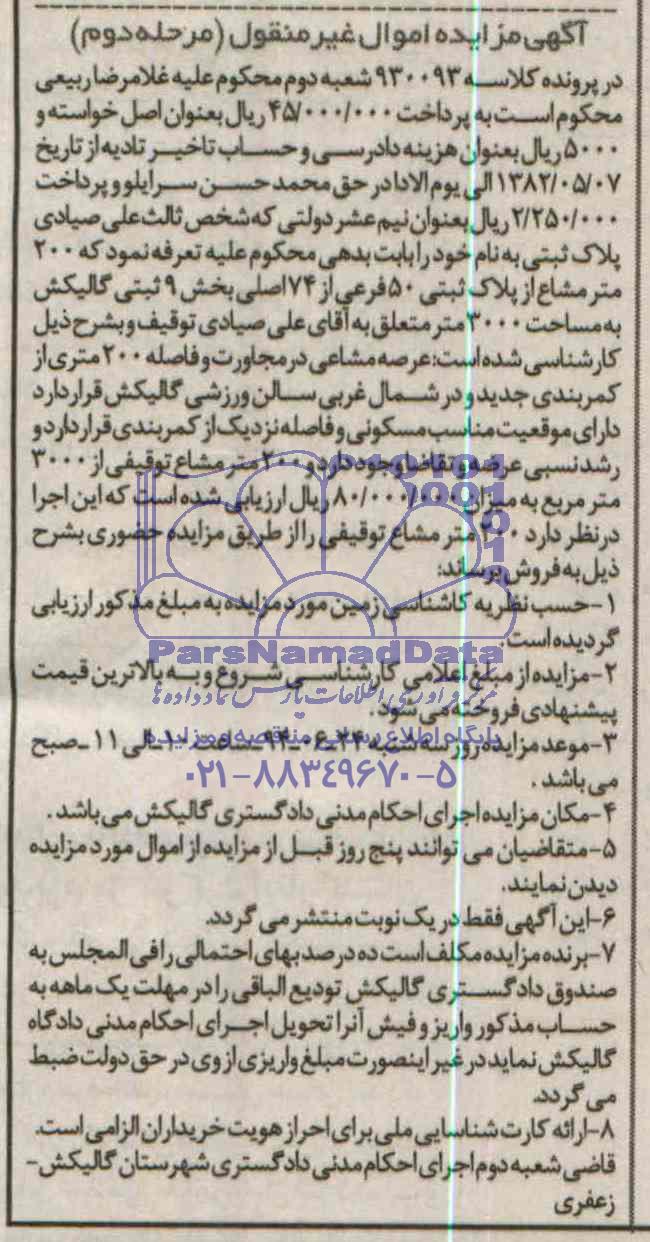 آگهی مزایده اموال غیر منقول (مرحله دوم)
در پرونده کلاسه ۹۳۰۰۹۳ شعبه دوم محکوم علیه غلامرضا ربیعی
محکوم است به پرداخت ۴۵/۰۰۰/۰۰۰ ریال بعنوان اصل خواسته و
۵۰۰۰ ریال بعنوان هزینه دادرسی و حساب تاخیر تادیه از تاریخ
۱۳۸۲/۰۵/۰۷ الی یوم الادا در حق محمد حسن سرایلو و پرداخت
۲/۲۵۰/۰۰۰ ریال بعنوان نیم عشر دولتی که شخص ثالث علی صیادی
پلاک ثبتی به نام خود را بابت بدهی محکوم علیه تعرفه نمود که ۲۰۰
متر مشاع از پلاک ثبتی ۵۰ فرعی از ۷۴ اصلی بخش ۹ ثبتی گالیکش
به مساحت ۳۰۰۰ متر متعلق به آقای علی صیادی توقیف و بشرح ذیل
کارشناسی شده است: عرصه مشاعی در مجاورت و فاصله ۲۰۰ متری از
کمربندی جدید و در شمال غربی سالن ورزشی گالیکش قرار دارد
دارای موقعیت مناسب مسکونی و فاصله نزدیک از کمربندی قرار دارد و
رشد نسبی عرضه و تقاضا وجود دارد و ۲۰۰ متر مشاع توقیفی از ۳۰۰۰
متر مربع به میزان ۸۰/۰۰۰/۰۰۰ ریال ارزیابی شده است که این اجرا
درنظر دارد ۲۰۰ متر مشاع توقیفی را از طریق مزایده حضوری بشرح
ذیل به فروش برساند:
۱-حسب نظریه کاشناسی زمین مورد مزایده به مبلغ مذکور ارزیابی
گردیده است.
ParsNamadData
۲-مزایده از مبلغ اعلامی کارشناسی شروع و به بالاترین قیمت
پیشنهادی فروخته می شود.
۳-موعد مزایده روز سه شنبه ۲۴-۰۶-۹۴ ساعت ۱۰ الی ۱۱ صبح
پایگاه اطلاع رسانی مناقصه و مزایده
می باشد.
۰۲۱-۸۸۳۴۹۶۷۰-۵
۴-مکان مزایده اجرای احکام مدنی دادگستری گالیکش می باشد.
۵-متقاضیان می توانند پنج روز قبل از مزایده از اموال مورد مزایده
دیدن نمایند.
۶-این آگهی فقط در یک نوبت منتشر می گردد.
۷-برنده مزایده مکلف است ده درصد بهای احتمالی را فی المجلس به
صندوق دادگستری گالیکش تودیع الباقی را در مهلت یک ماهه به
حساب مذکور واریز و فیش آنرا تحویل اجرای احکام مدنی دادگاه
گالیکش نماید در غیر اینصورت مبلغ واریزی از وی در حق دولت ضبط
می گردد.
۸-ارائه کارت شناسایی ملی برای احراز هویت خریداران الزامی است.
قاضی شعبه دوم اجرای احکام مدنی دادگستری شهرستان گالیکش-
زعفری